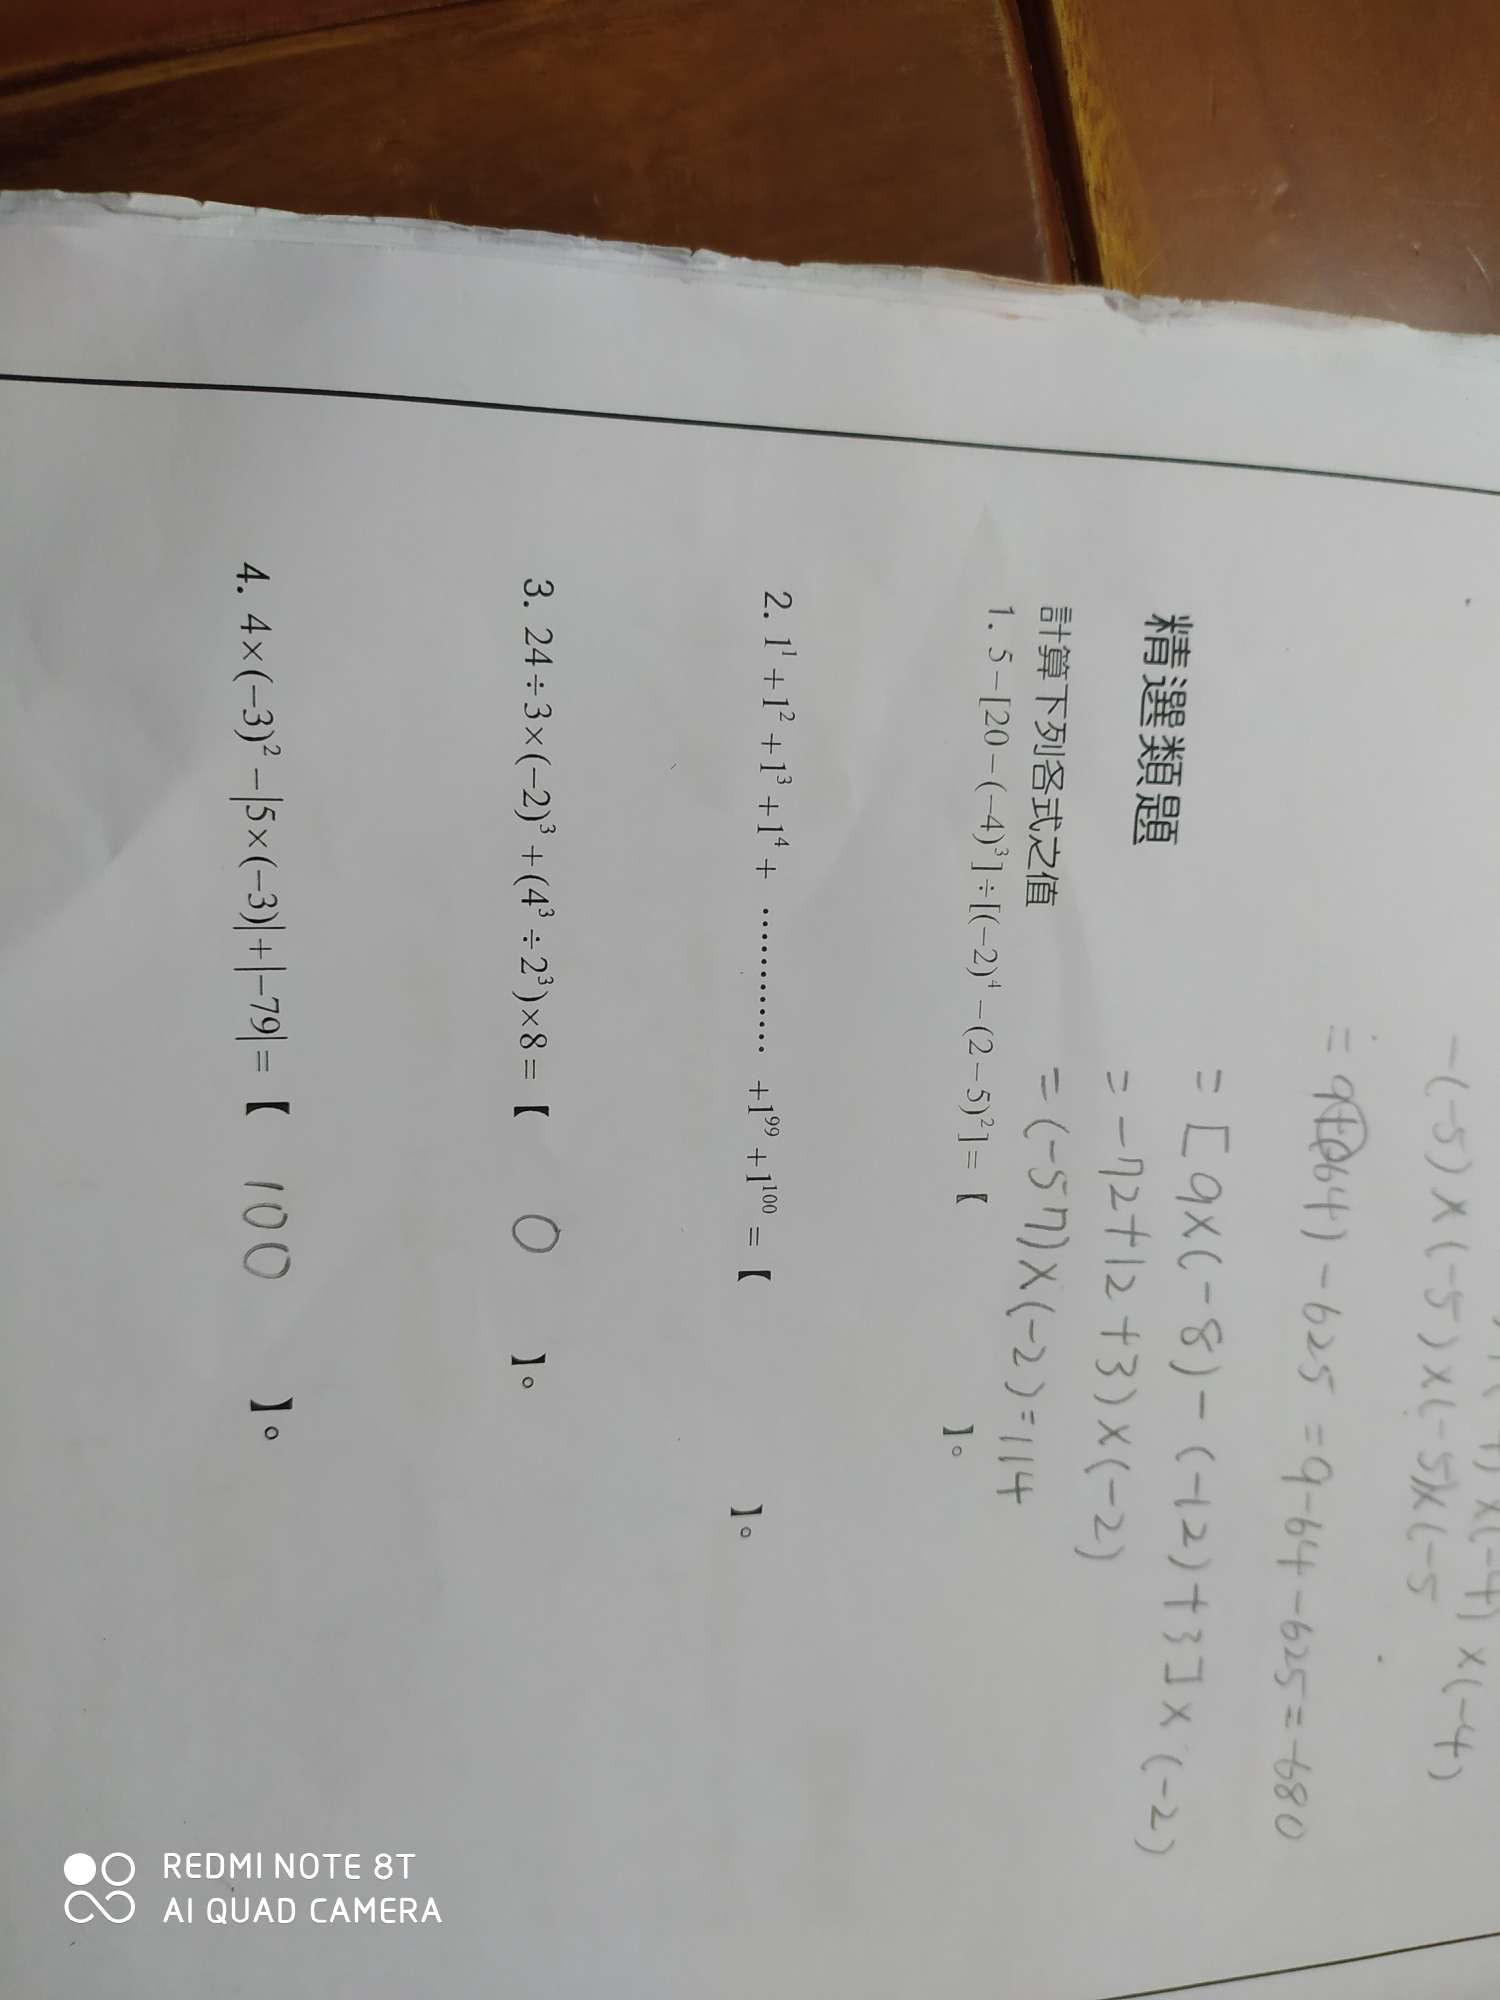 -(-5)×(-5)×(-5)×(-5
×(-4)×(-4)
=9+(-64)-625=9-64-625=-680
=[9×(-8)-(-12)+3]×(-2)
=-72+12+3)×(-2)
=(-57)×(-2)=114
精選類題
計算下列各式之值
1. 5-[20-(-4)³]÷[(-2)⁴-(2-5)²]=【 】。
2. 1¹+1²+1³+1⁴+ ………… +1⁹⁹+1¹⁰⁰=【 】。
3. 24÷3×(-2)³+(4³÷2³)×8=【 0 】。
4. 4×(-3)²-|5×(-3)|+|-79|=【 100 】。
REDMI NOTE 8T
AI QUAD CAMERA